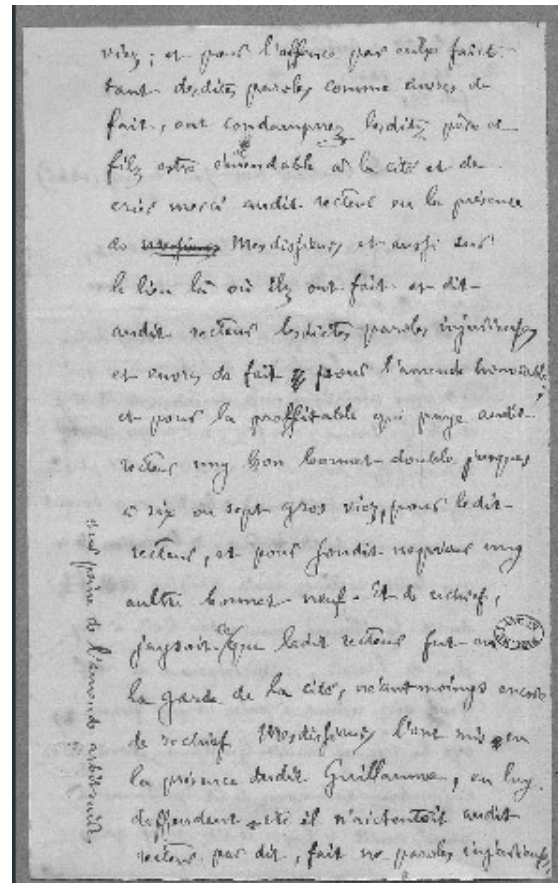 viez ; et pour l'offence par eulx faict
tant desdites paroles comme euvres de
fait, ont condampnez lesditz père et
filz estre émendable à la cité et de
crier merci audit recteur en la présence
de Mesdisseurs et aussi sus
le lieu là où ilz ont fait et dit
audit recteur lesdictes paroles injurieuses
et euvres de fait pour l'amende honorable,
et pour la proffitable qui paye audit
recteur ung bon bonnet double jusques
à six ou sept gros viez, pour ledit
recteur, et pour sondit nepveux ung
aultre bonnet neuf. Et de rechief,
jaysoit ce que ledit recteur fut en
la garde de la cité, néantmoings encore
de rechief Mesdisseurs l'ont mis en
la présence dudit Guillaume, en luy
deffendent il n'actentoit audit
recteur par dit, fait ne paroles injurieuses
sus peine de l'amende arbitraire